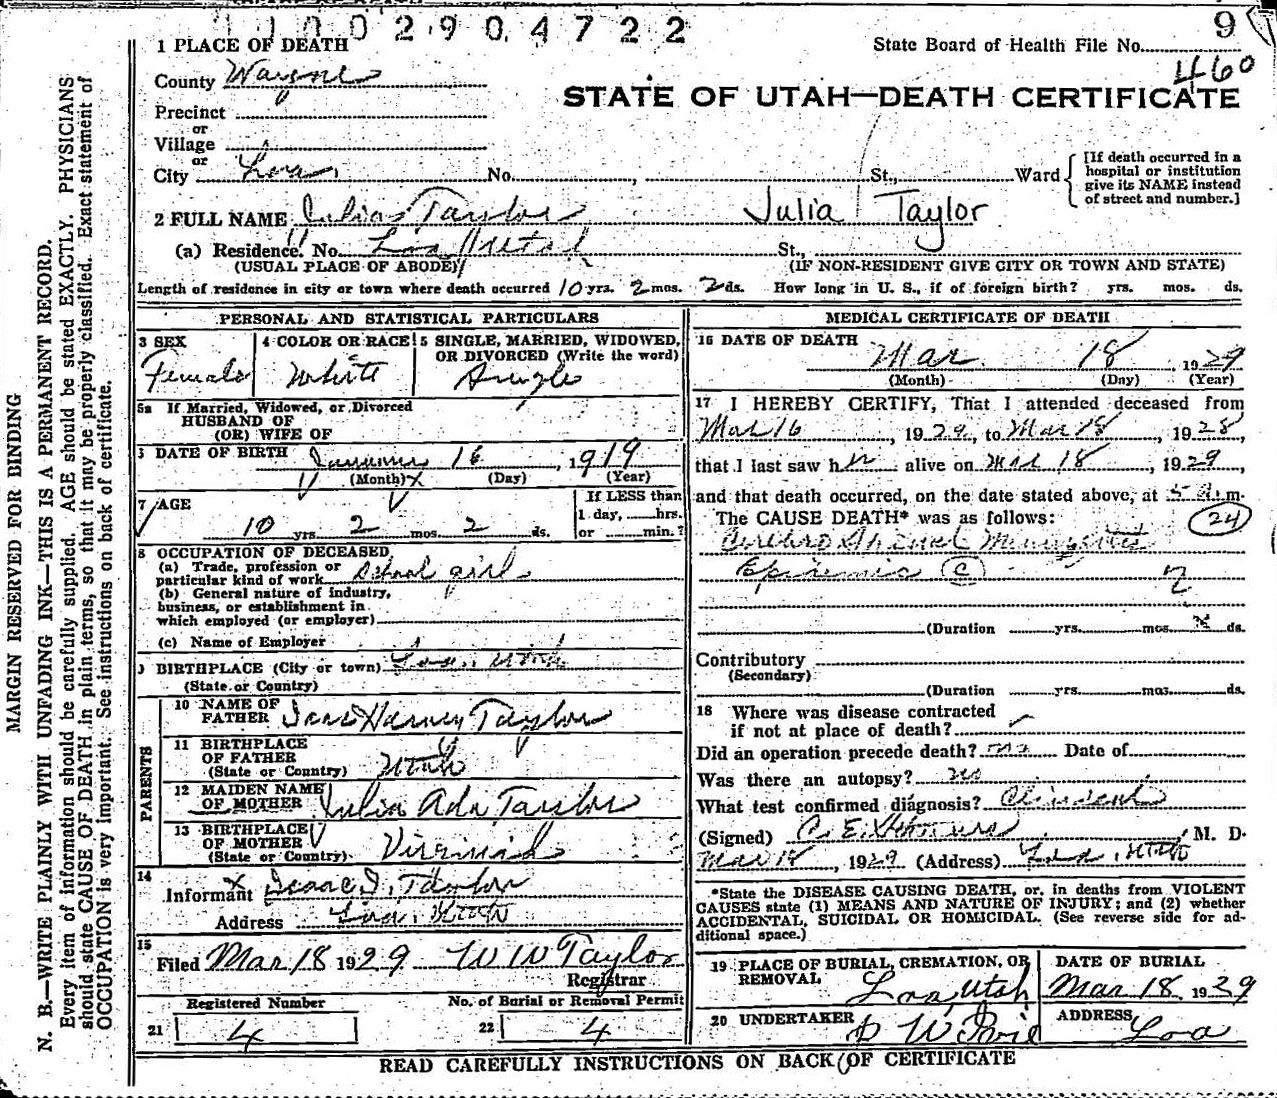 1100290 4722
9
1 PLACE OF DEATH
State Board of Health File No.
460
County Wayne
STATE OF UTAH—DEATH CERTIFICATE
Precinct
or
Village
or
City Loa, No. , St., Ward
[If death occurred in a hospital or institution give its NAME instead of street and number.]
2 FULL NAME Julia Taylor Julia Taylor
(a) Residence. No. Loa Utah St.,
(USUAL PLACE OF ABODE) (IF NON-RESIDENT GIVE CITY OR TOWN AND STATE)
Length of residence in city or town where death occurred 10 yrs. 2 mos. 2 ds. How long in U. S., if of foreign birth? yrs. mos. ds.
PERSONAL AND STATISTICAL PARTICULARS
3 SEX
Female
4 COLOR OR RACE
White
5 SINGLE, MARRIED, WIDOWED, OR DIVORCED (Write the word)
Single
5a If Married, Widowed, or Divorced
HUSBAND OF
(OR) WIFE OF
DATE OF BIRTH January 16, 1919
(Month) (Day) (Year)
7 AGE
10 yrs 2 mos. 2 ds.
If LESS than
1 day, hrs.
or min.?
8 OCCUPATION OF DECEASED
(a) Trade, profession or
particular kind of work School girl
(b) General nature of industry,
business, or establishment in
which employed (or employer)
(c) Name of Employer
BIRTHPLACE (City or town) Loa, Utah
(State or Country)
PARENTS
10 NAME OF
FATHER Harvey Taylor
11 BIRTHPLACE
OF FATHER
(State or Country) Utah
12 MAIDEN NAME
OF MOTHER Julia Ada Taylor
13 BIRTHPLACE
OF MOTHER
(State or Country) Virginia
14
Informant Isaac J. Taylor
Address Loa, Utah
15
Filed Mar 18 1929 W W Taylor
Registrar
Registered Number
21 4
No. of Burial or Removal Permit
22 4
MEDICAL CERTIFICATE OF DEATH
16 DATE OF DEATH
Mar 18 1929
(Month) (Day) (Year)
17 I HEREBY CERTIFY, That I attended deceased from
Mar 16, 1929, to Mar 18, 1928,
that I last saw her alive on Mar 18, 1929,
and that death occurred, on the date stated above, at 5 a.m.
The CAUSE DEATH* was as follows:
24
Cerebro Spinal Meningitis
Epidemic C
2
(Duration yrs. mos. ds.
Contributory
(Secondary)
(Duration yrs. mos. ds.
18 Where was disease contracted
if not at place of death?
Did an operation precede death? no Date of
Was there an autopsy? no
What test confirmed diagnosis? Clinical
(Signed) C. E. , M. D.
Mar 18, 1929 (Address) Loa, Utah
*State the DISEASE CAUSING DEATH, or, in deaths from VIOLENT
CAUSES state (1) MEANS AND NATURE OF INJURY; and (2) whether
ACCIDENTAL, SUICIDAL OR HOMICIDAL. (See reverse side for ad-
ditional space.)
19 PLACE OF BURIAL, CREMATION, OR
REMOVAL Loa, Utah
DATE OF BURIAL
Mar 18 1929
20 UNDERTAKER
ADDRESS
Loa
READ CAREFULLY INSTRUCTIONS ON BACK OF CERTIFICATE
MARGIN RESERVED FOR BINDING
N. B.—WRITE PLAINLY WITH UNFADING INK—THIS IS A PERMANENT RECORD.
Every item of information should be carefully supplied. AGE should be stated EXACTLY. PHYSICIANS
should state CAUSE OF DEATH in plain terms, so that it may be properly classified. Exact statement of
OCCUPATION is very important. See instructions on back of certificate.